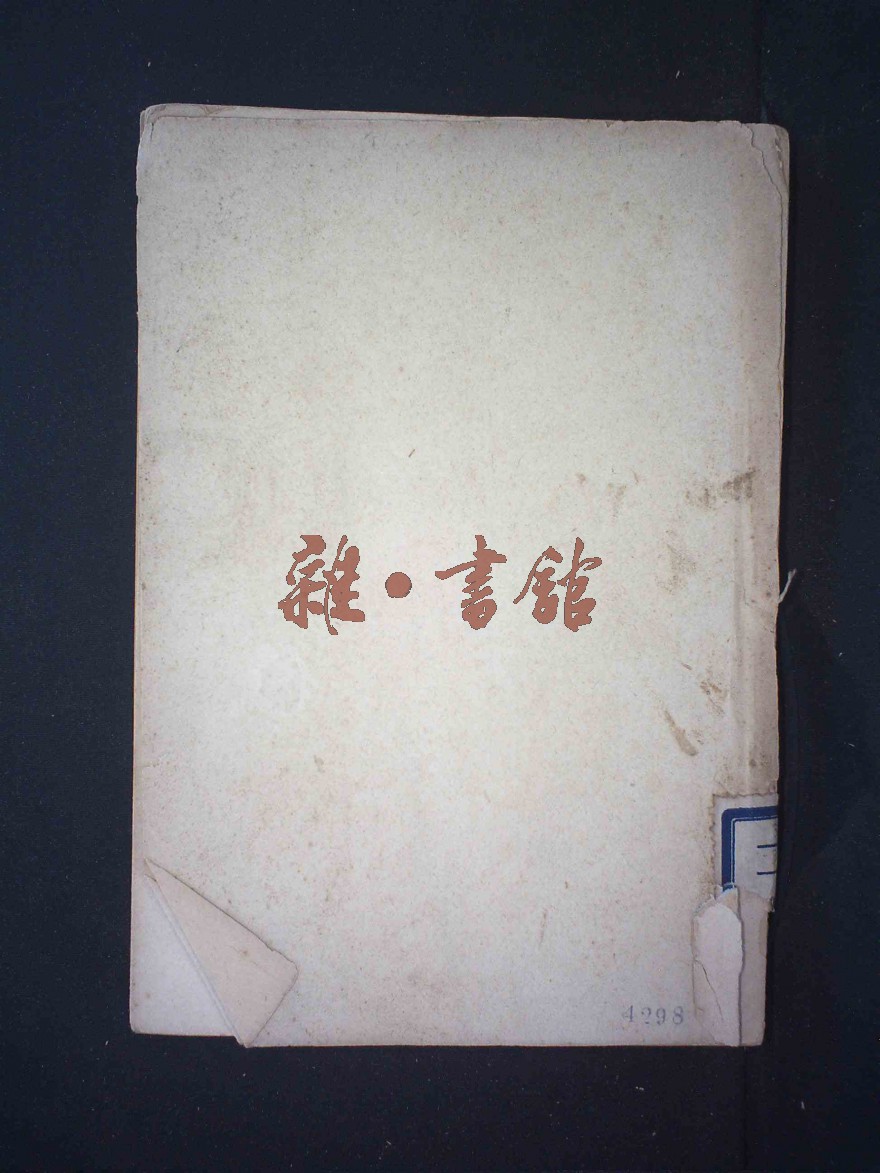 雜·書館
4298